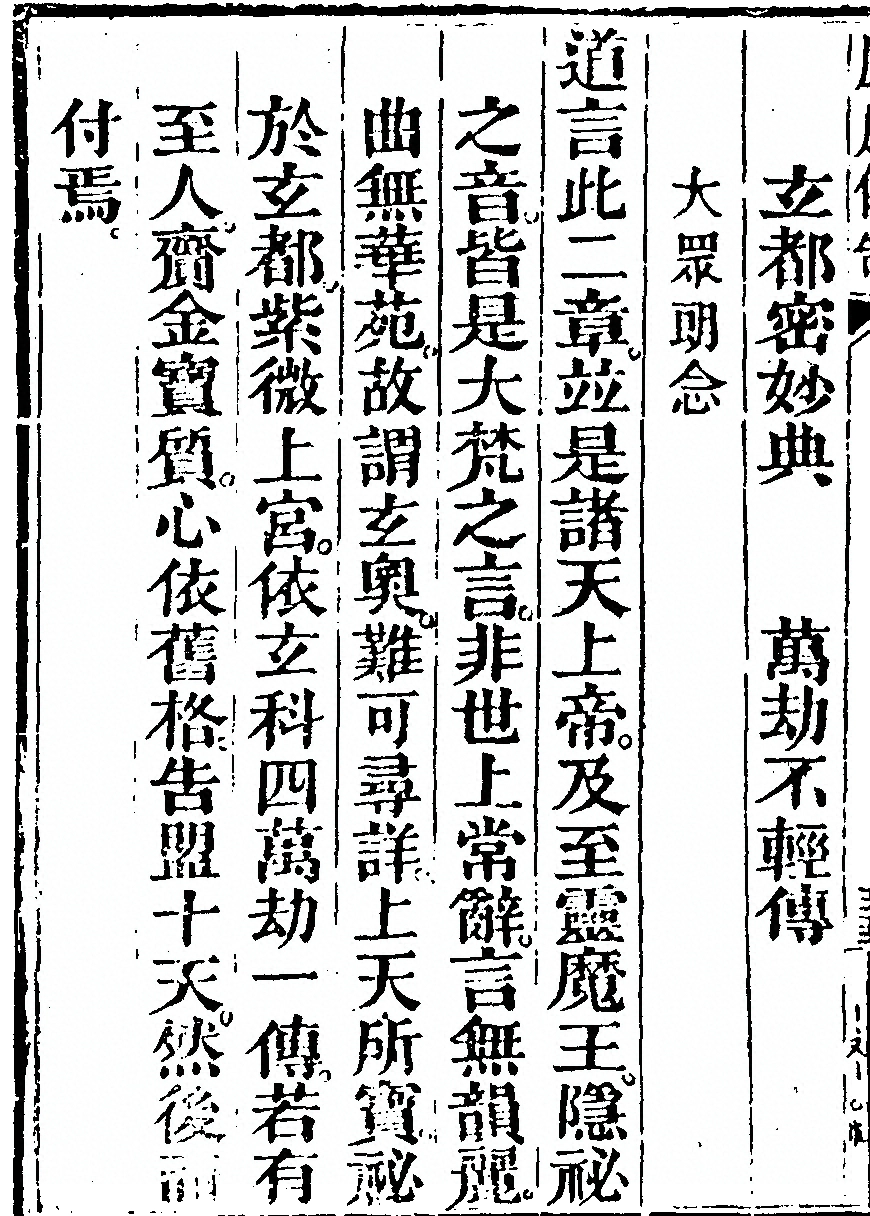 玄都密妙典　萬劫不輕傳
大眾朗念
道言此二章。並是諸天上帝。及至靈魔王。隱祕
之音。皆是大梵之言。非世上常辭。言無韻麗。
曲無華苑。故謂玄奧。難可尋詳。上天所寶。祕
於玄都。紫微上宮。依玄科四萬劫一傳。若有
至人。齎金寶質。心依舊格。告盟十天。然後而
付焉。